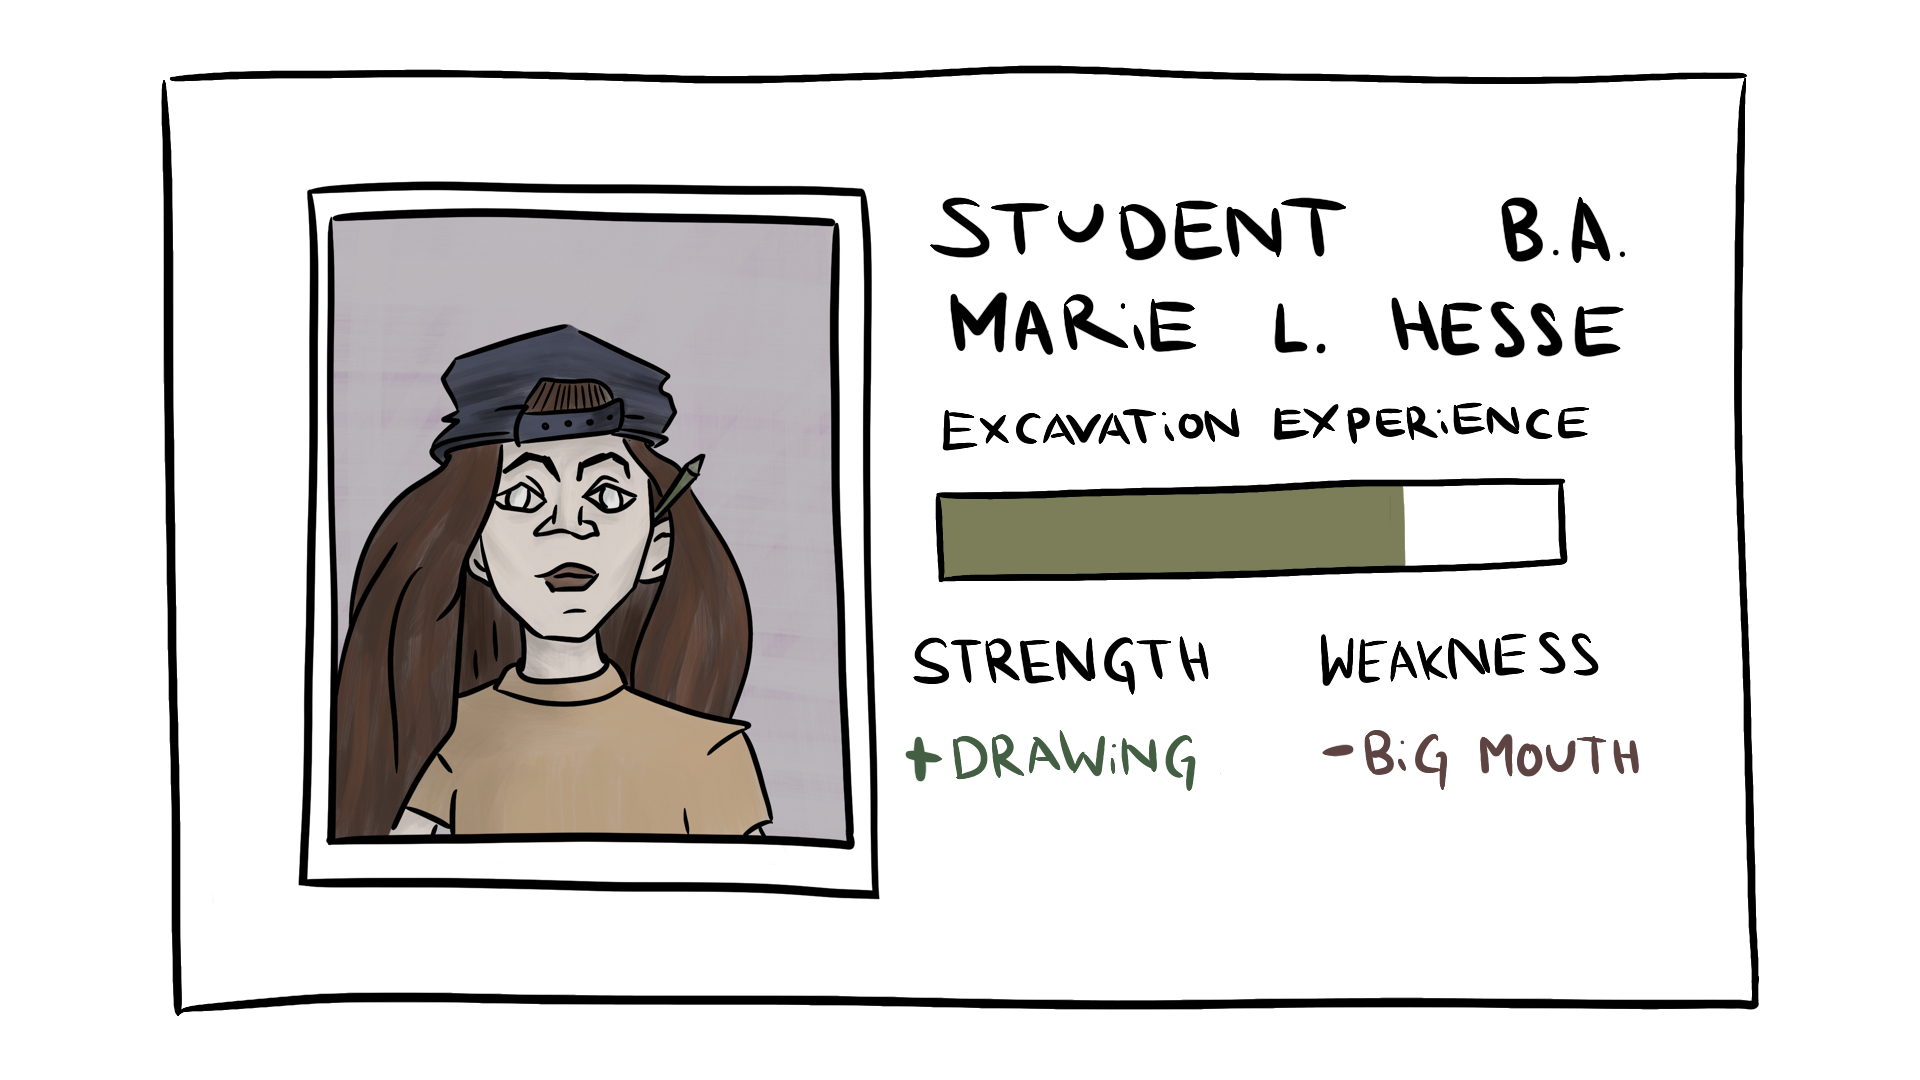 STUDENT B.A.
MARiE L. HESSE
EXCAVATiON EXPERiENCE
STRENGTH WEAKNESS
+DRAWiNG -BiG MOUTH